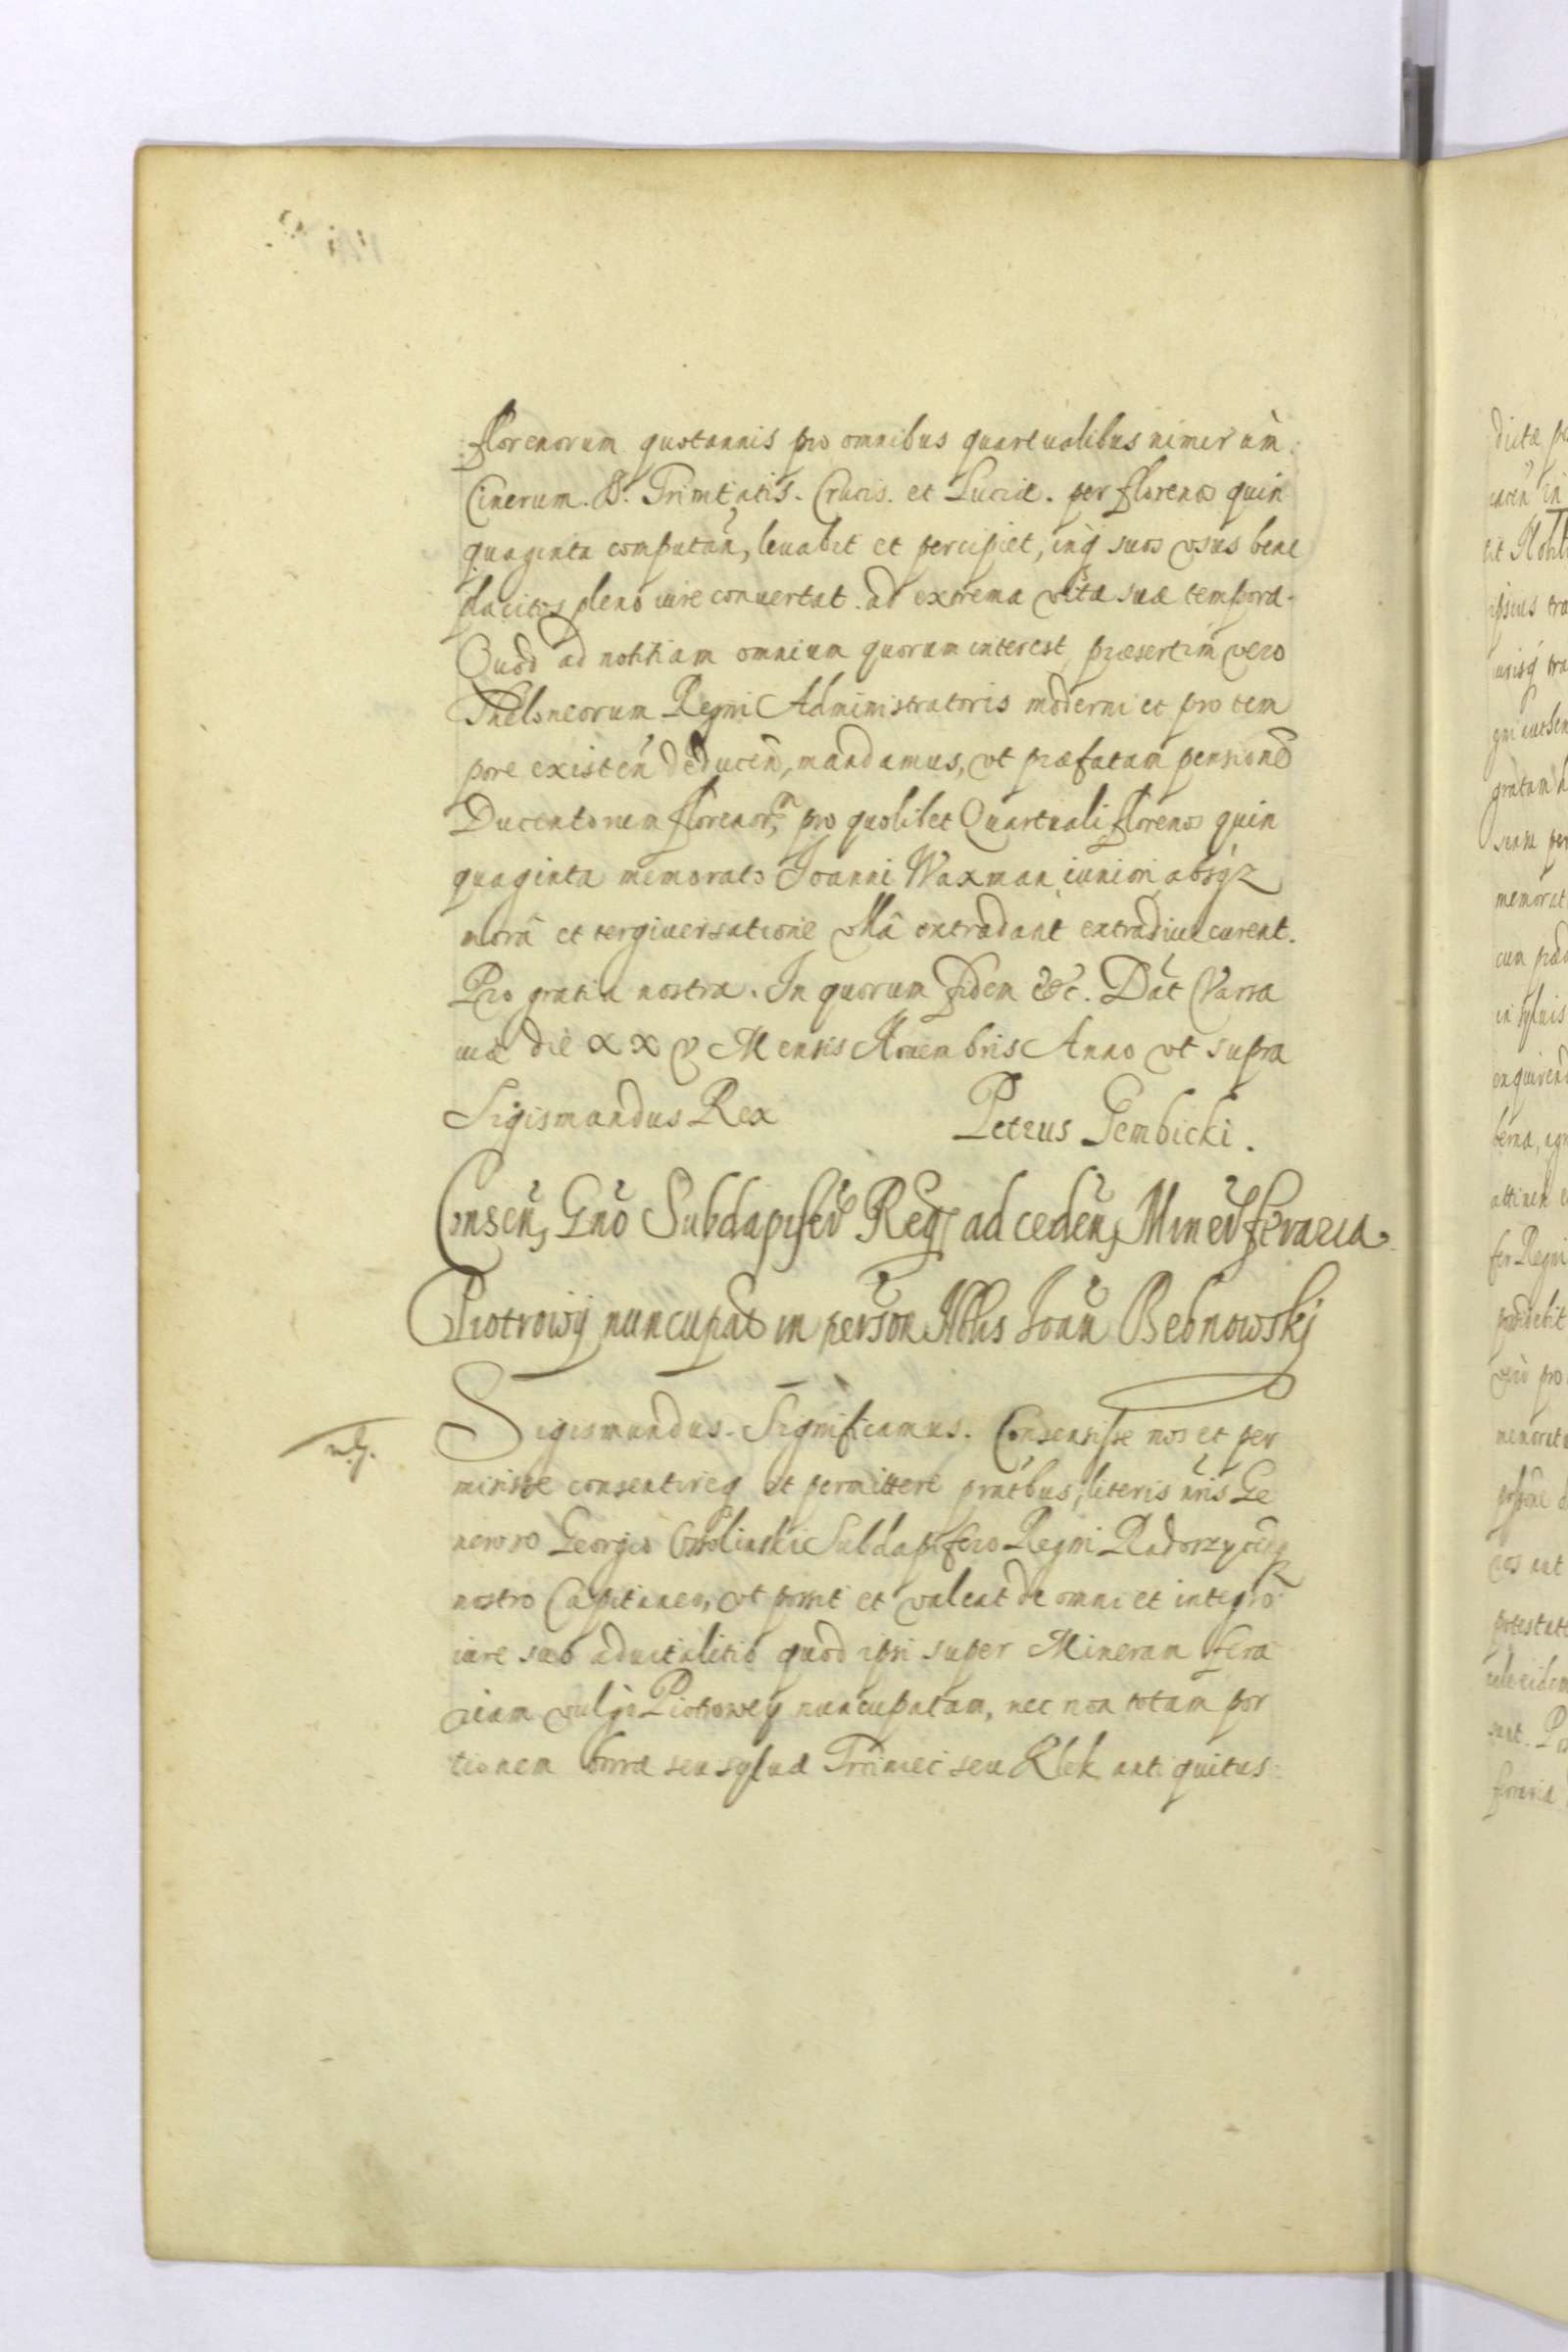 florenorum quotannis pro omnibus quartualibus nimirum:
Cinerum. S. Trinitatis. Crucis. et Luciæ. per florenos quin
quaginta computañ, levabit et percipiet, inq suos usus bene
placitos pleno iure convertat. ad extrema vitæ suæ tempora.
Quod ad notitiam omnium quorum interest, præsertim vero
Theloneorum Regni Administratoris moderni et pro tem
pore existeñ deduceñ, mandamus, vt præfatam pensionẽ
Ducentorum florenor, pro quolibet Quartuali florenos quin
quaginta memorato Joanni Waxman iuniori absqz
morâ et tergiversatione vllâ extradant extradive curent.
Pro gratia nostra. In quorum fidem &c. Dat Varsa
viæ die XXV Mensis Novembris Anno vt supra
Sigismundus Rex Petrus Gembicki.
Conseñ, Gño Subdapiferõ Reg ad cedeñ, Minerã ferraria
Piotrowy nuncupat in person Nblis Joañ Bebnowskj
Sigismundus. Significamus. Consensisse nos et per
misisse consentireq et permittere prætbus, literis nris Ge
neroso Georgio Ossolinski Subdapifero Regni Radoszyceñ
nostro Capitaneo, vt possit et valeat de omni et integro
iure suo aduitalitio quod ipsi super Mineram ferra
riam vulgo Piotrowy nuncupatam, nec non totam por
tionem borræ seu sylvæ antiquitus